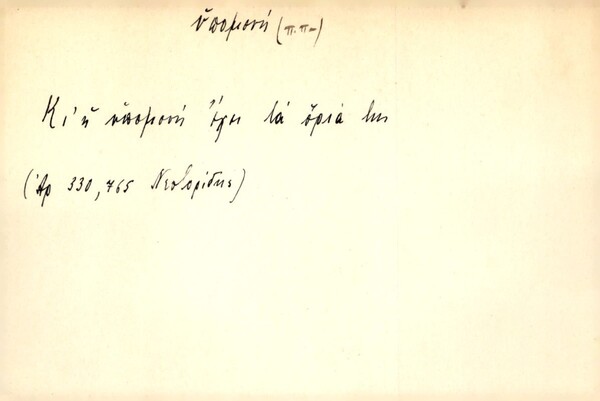 ὑπομονή (π.π—)
Κι' ἡ ὑπομονή ἔχει τά ὅριά της
(Ἀρ 330, 765 Νεστορίδης)